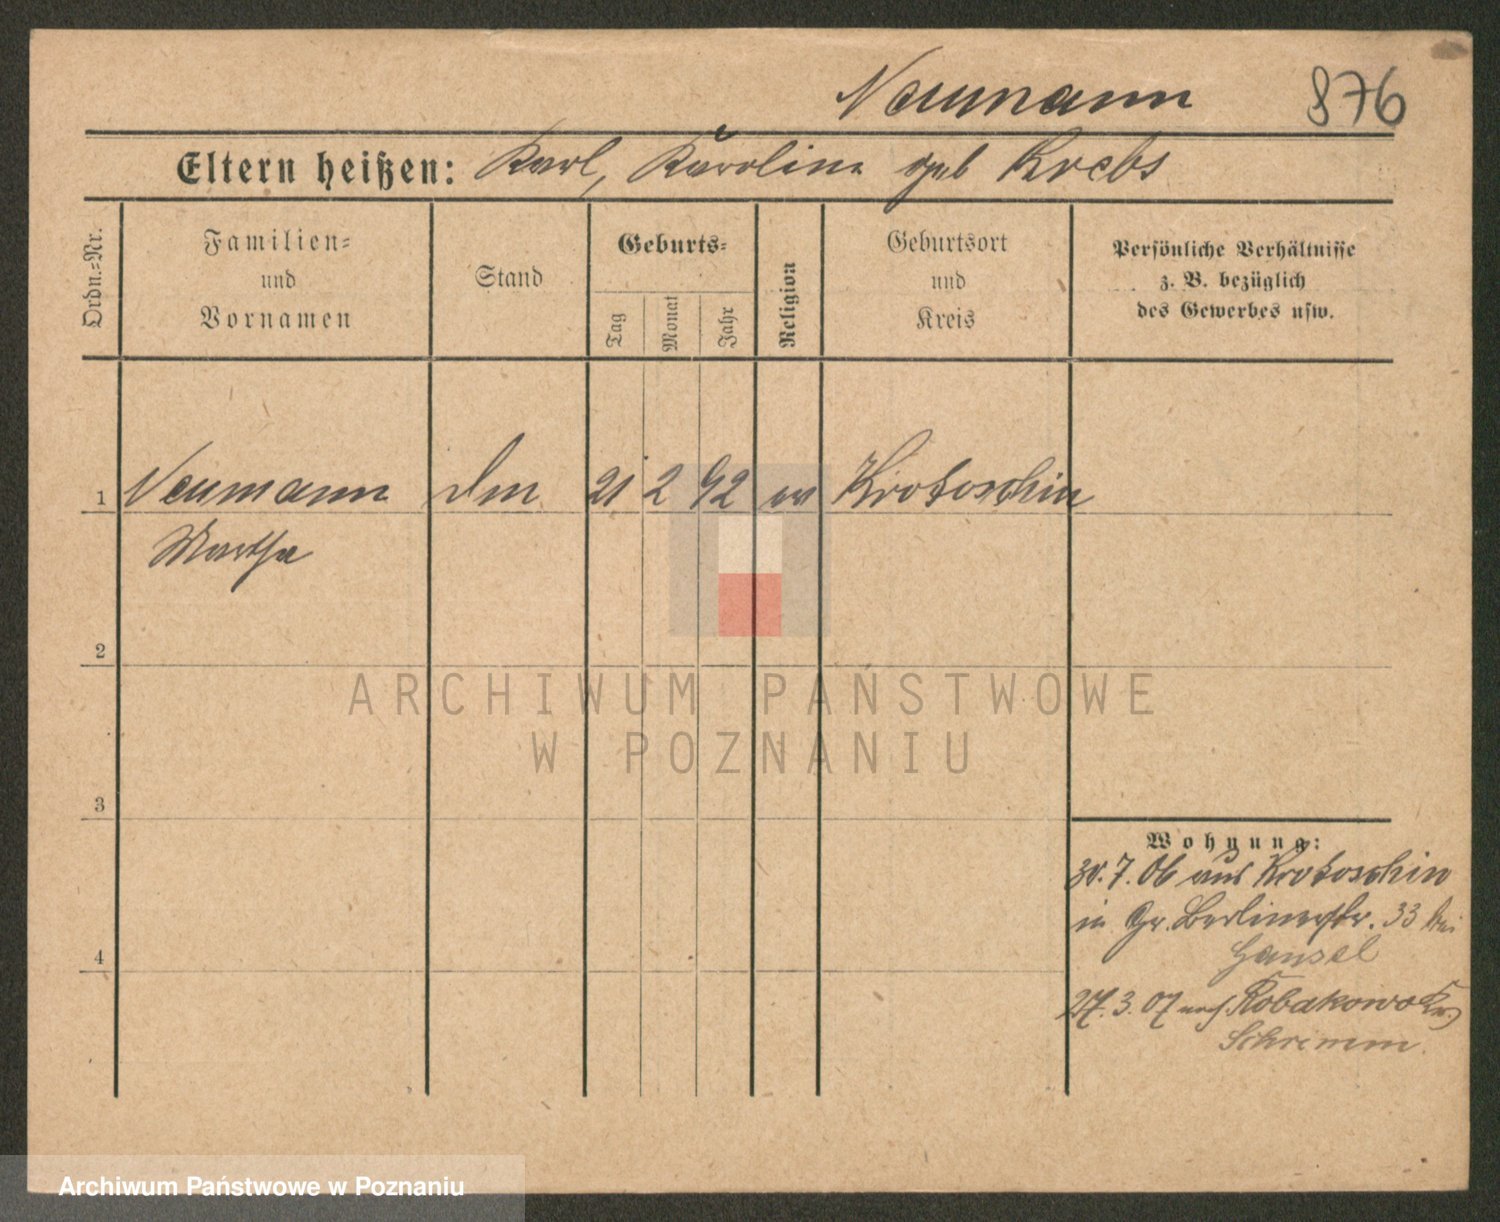 Neumann 876
Eltern heißen: Karl, Karoline geb Krebs
Ordn.-Nr.
Familien-
und
Vornamen
Stand
Geburts-
Tag
Monat
Jahr
Religion
Geburtsort
und
Kreis
Persönliche Verhältnisse
z. B. bezüglich
des Gewerbes usw.
1 Neumann 21 2 92 ev Krotoschin
Martha
2
ARCHIWUM PAŃSTWOWE
W POZNANIU
3
Wohnung:
30.7.06 aus Krotoschin
in Gr. Berlinerstr. 33 bei
4
27.3.07 nach Robakowo Kr.
Schrimm.
Archiwum Państwowe w Poznaniu